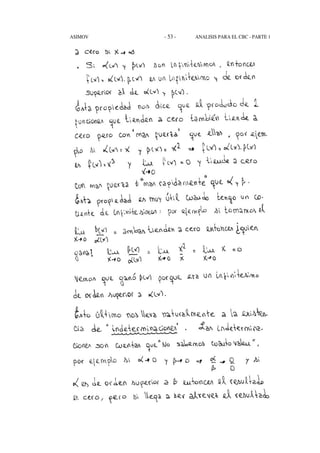 ASIMOV - 53 - ANALISIS PARA EL CBC - PARTE 1
a cero si x→∞
. Si α(x) y β(x) son infinitésimos, entonces
f(x) = α(x).β(x) es un infinitesimo y de orden
superior al de α(x) y β(x).
Ésta propiedad nos dice que el producto de 2
funciones que tienden a cero también tiende a
cero pero con "mas fuerza" que ellas, por ejem
plo si α(x)=x y β(x)=x² ⇒ f(x)=α(x).β(x)
es f(x)=x³ y Lim f(x)=0 y tiende a cero
x→0
con mas fuerza ó "mas rapidamente" que α y β.
Ésta propiedad es muy útil cuando tengo un co-
ciente de infinitésimos: por ejemplo si tomamos el
Lim β(x)/α(x) = ambas tienden a cero entonces ¿quien
x→0
gana? Lim β(x)/α(x) = Lim x²/x = Lim x = 0
x→0 x→0 x→0
Vemos que ganó β(x) porque era un infinitesimo
de orden superior a α(x).
Ésto último nos lleva naturalmente a la existen-
cia de "indeterminaciones". Las indetermina-
ciones son cuentas que "No sabemos cuánto valen",
por ejemplo si α→0 y β→0 ⇒ α/β → 0/0 y si
α es de orden superior a β entonces el resultado
es cero, pero si llega a ser al reves el resultado